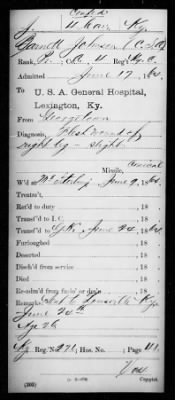 Confed
J. 4 Cav. Ky.
Garrett Johnson (C.S.A)
Rank, Pt. Co. 4 Reg't
Admitted June 17, 186
To
U. S. A. General Hospital,
Lexington, Ky.
From Georgetown
Diagnosis, Flesh wound of
right leg - slight
Missile, Conical
W'd Mt Sterling June 9, 186
Treatm't,
Ret'd to duty 18
Transf'd to I. C. 18
Transf'd to G.H., June 24, 186
Furloughed 18
Deserted 18
Disch'd from service 18
Died 18
Re-adm'd from furlo' or des'n 18
Remarks: to Louisville Ky.
June 24th
Age 26
Ky Reg. No. 271; Hos. No. ; Page 41
Copyist.